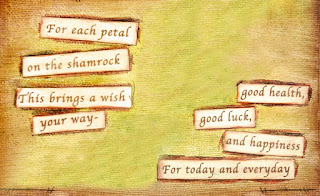 For each petal
on the shamrock
This brings a wish
your way-
good health,
good luck,
and happiness
For today and everyday